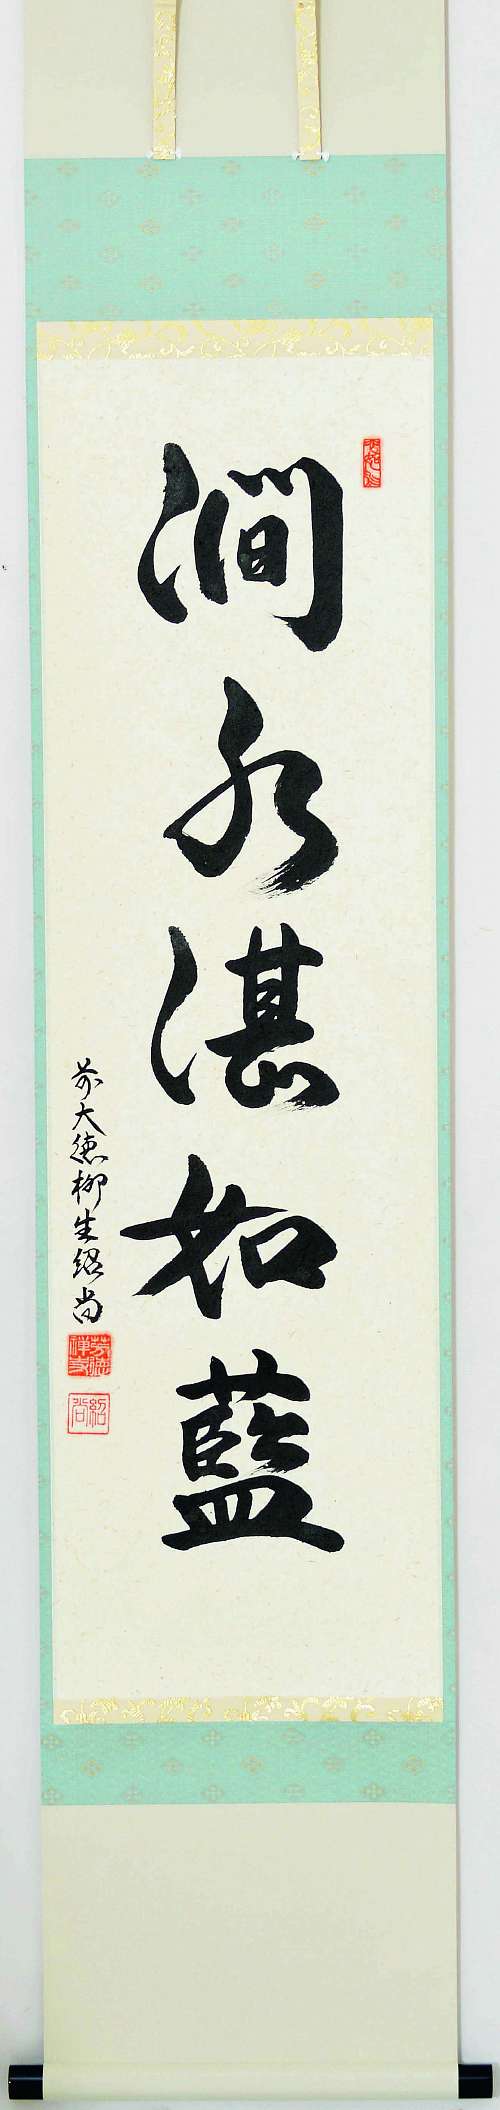 澗水湛如藍
前大徳柳生紹尚
紹尚